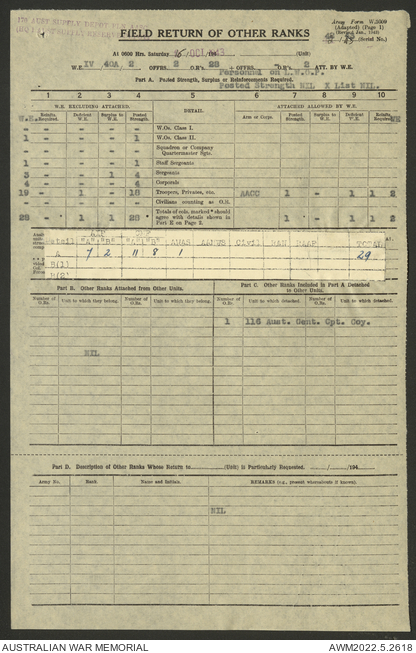 Army Form W.3009
(Adapted) (Page 1)
(Serial No.)
FIELD RETURN OF OTHER RANKS
At 0600 Hrs. Saturday
(Unit)
W.E. IV 40A 2 OFFRS. 2 O.R's 28 + OFFRS. O.R's 2 ATT. BY W.E.
Personnel on L.W.O.P.
Part A. Posted Strength, Surplus or Reinforcements Required.
Posted Strength NIL X List NIL.
1 2 3 4 5 6 7 8 9 10
W.E. EXCLUDING ATTACHED. DETAIL. ATTACHED ALLOWED BY W.E.
W.E. Reinfts. Required. Deficient W.E. Surplus to W.E. Posted Strength Arm or Corps. Posted Strength Surplus to W.E. Deficient W.E. Reinfts. Required. WE
- - - - W.Os. Class I.
1 - - 1 W.Os. Class II.
- - - - Squadron or Company Quartermaster Sgts.
1 - - 1 Staff Sergeants
3 - 1 4 Sergeants
4 - - 4 Corporals
19 - 1 - 18 Troopers, Privates, etc. AACC 1 - 1 1 2
- - - - Civilians counting as O.R.
28 - 1 1 28 Totals of cols. marked * should agree with details shown in Part E on Page 2. 1 - 1 1 2
Detail "A" "B" "A" "B" AMAS AWNES Civil RAN RAAF TOTAL
A 7 2 11 8 1 29
B(1)
B(2)
Part B. Other Ranks Attached from Other Units.
Part C. Other Ranks Included in Part A Detached to Other Units.
Number of O.Rs. Unit to which they belong. Number of O.Rs. Unit to which they belong. Number of O.Rs. Unit to which detached. Number of O.Rs. Unit to which detached.
1 116 Aust. Gent. Cpt. Coy.
NIL
Part D. Description of Other Ranks Whose Return to (Unit) is Particularly Requested. / /194
Army No. Rank Name and Initials. REMARKS (e.g., present whereabouts if known).
NIL
AUSTRALIAN WAR MEMORIAL
AWM2022.5.2618